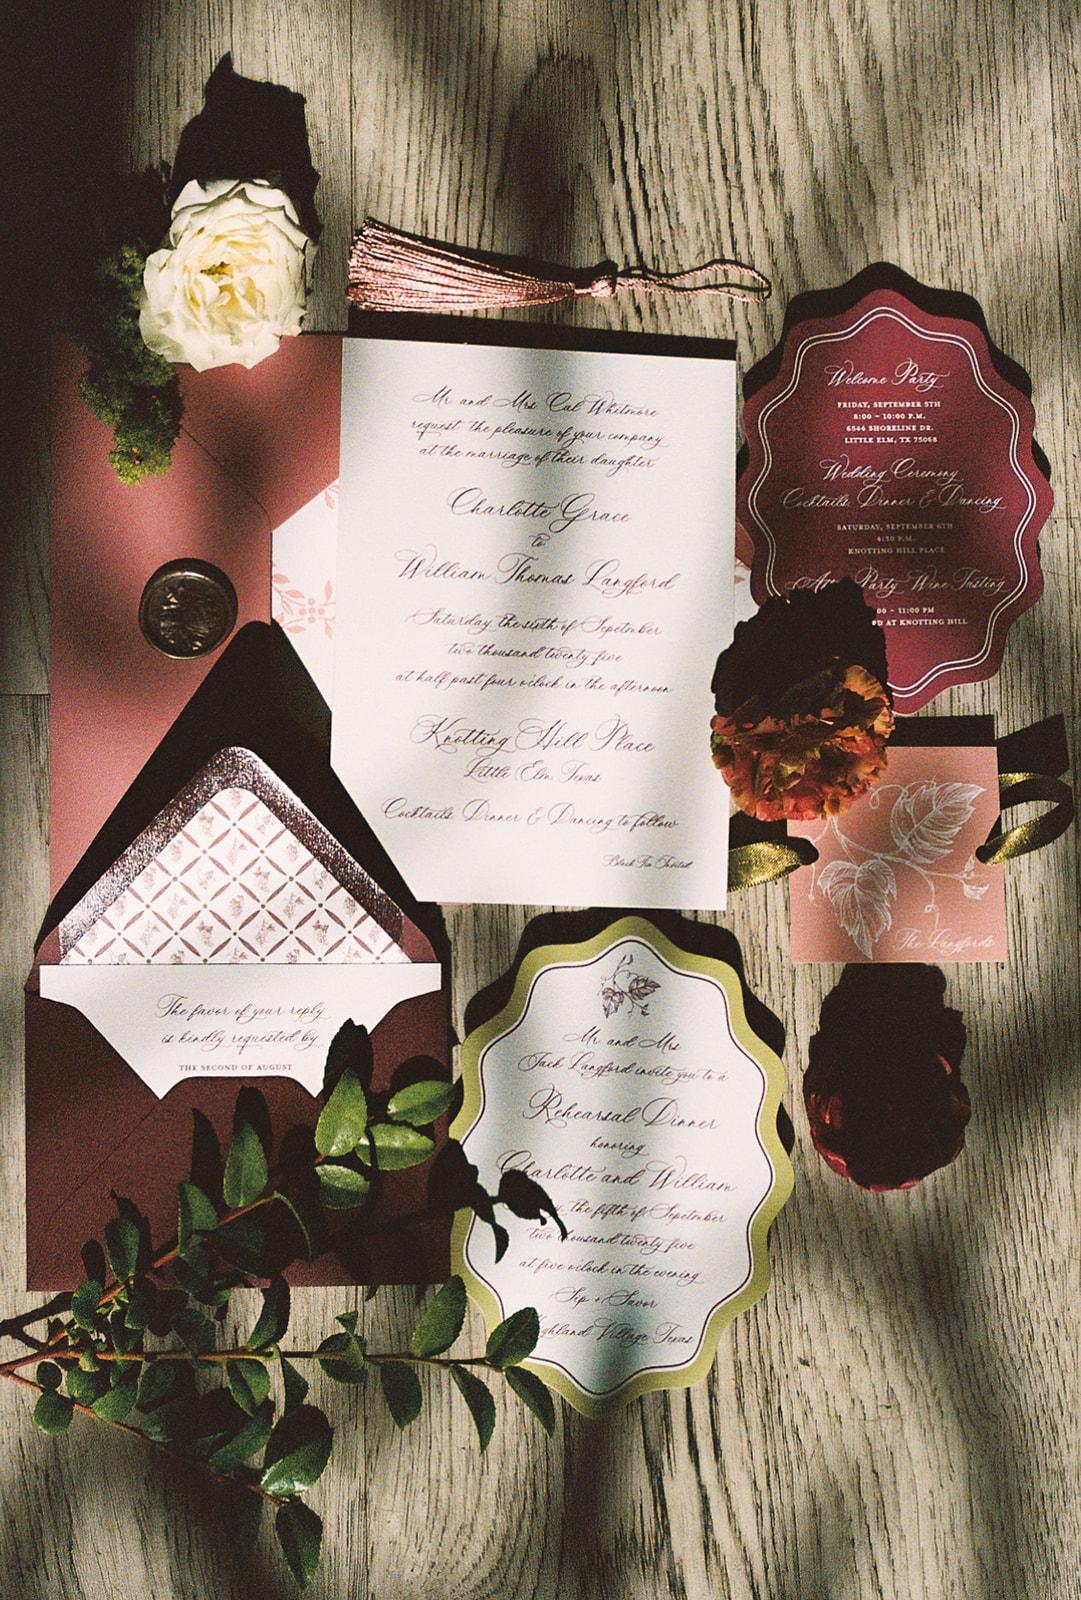 Mr. and Mrs. Cal Whitmore
request the pleasure of your company
at the marriage of their daughter
Charlotte Grace
to
William Thomas Langford
Saturday, the sixth of September
two thousand twenty five
at half past four o'clock in the afternoon
Knotting Hill Place
Little Elm, Texas
Cocktails, Dinner & Dancing to follow
Black Tie Invited
Welcome Party
FRIDAY, SEPTEMBER 5TH
8:00 - 10:00 P.M.
6544 SHORELINE DR.
LITTLE ELM, TX 75068
Wedding Ceremony
Cocktails, Dinner & Dancing
SATURDAY, SEPTEMBER 6TH
4:30 P.M.
KNOTTING HILL PLACE
Party Wine Tasting
- 11:00 PM
AT KNOTTING HILL
The Langfords
The favor of your reply
is kindly requested by
THE SECOND OF AUGUST
Mr. and Mrs.
Jack Langford invite you to a
Rehearsal Dinner
honoring
Charlotte and William
the fifth of September
two thousand twenty five
at five o'clock in the evening
Sip + Savor
Highland Village, Texas